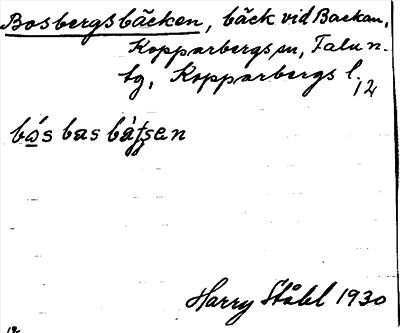 Bosbergsbäcken, bäck vid Backan,
Kopparbergs sn, Falu n.
tg, Kopparbergs l.
12
bo̲´s bas bät̨s̨en
Harry Ståhl 1930